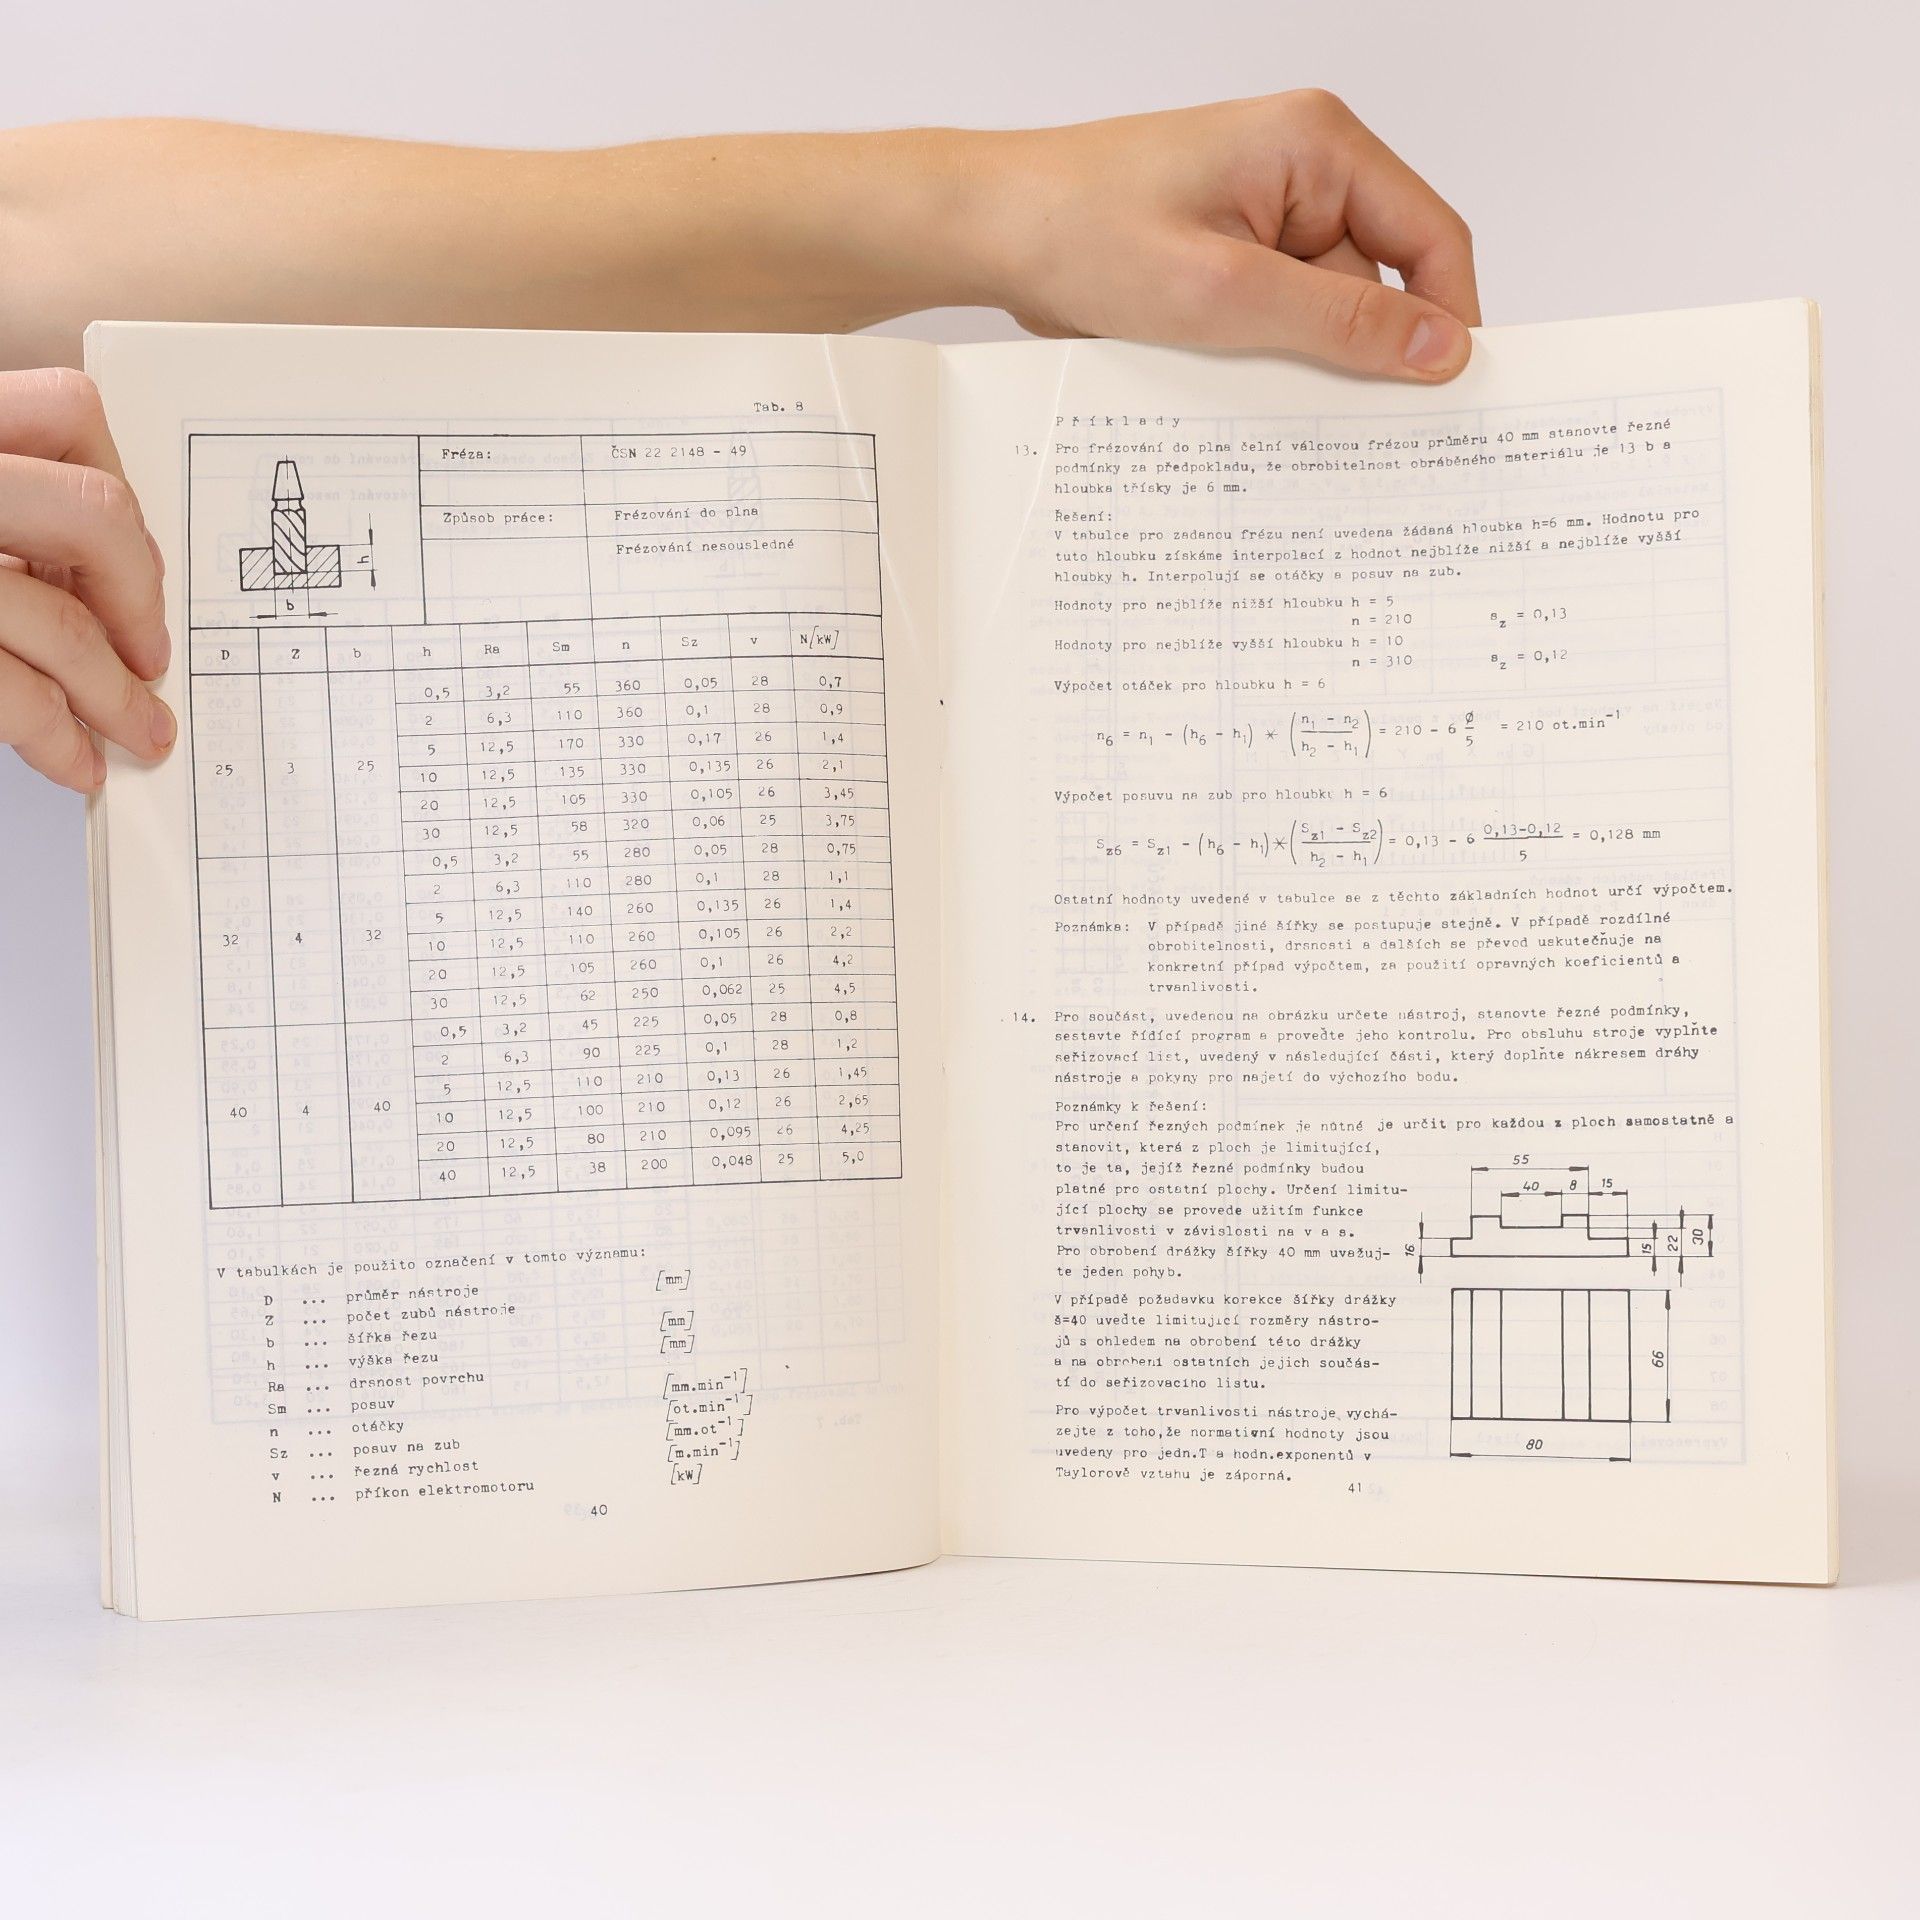 Tab. 8
Fréza: ČSN 22 2148 - 49
Způsob práce: Frézování do plna
Frézování nesousledné
h
b
D Z b h Ra Sm n Sz v N[kW]
0,5 3,2 55 360 0,05 28 0,7
2 6,3 110 360 0,1 28 0,9
5 12,5 170 330 0,17 26 1,4
25 3 25 10 12,5 135 330 0,135 26 2,1
20 12,5 105 330 0,105 26 3,45
30 12,5 58 320 0,06 25 3,75
0,5 3,2 55 280 0,05 28 0,75
2 6,3 110 280 0,1 28 1,1
5 12,5 140 260 0,135 26 1,4
32 4 32 10 12,5 110 260 0,105 26 2,2
20 12,5 105 260 0,1 26 4,2
30 12,5 62 250 0,062 25 4,5
0,5 3,2 45 225 0,05 28 0,8
2 6,3 90 225 0,1 28 1,2
5 12,5 110 210 0,13 26 1,45
40 4 40 10 12,5 100 210 0,12 26 2,65
20 12,5 80 210 0,095 26 4,25
40 12,5 38 200 0,048 25 5,0
V tabulkách je použito označení v tomto významu:
D ... průměr nástroje [mm]
Z ... počet zubů nástroje
b ... šířka řezu [mm]
h ... výška řezu [mm]
Ra ... drsnost povrchu
Sm ... posuv [mm.min⁻¹]
n ... otáčky [ot.min⁻¹]
Sz ... posuv na zub [mm.ot⁻¹]
v ... řezná rychlost [m.min⁻¹]
N ... příkon elektromotoru [kW]
40
Příklady
13. Pro frézování do plna čelní válcovou frézou průměru 40 mm stanovte řezné
podmínky za předpokladu, že obrobitelnost obráběného materiálu je 13 b a
hloubka třísky je 6 mm.
Řešení:
V tabulce pro zadanou frézu není uvedena žádaná hloubka h=6 mm. Hodnotu pro
tuto hloubku získáme interpolací z hodnot nejblíže nižší a nejblíže vyšší
hloubky h. Interpolují se otáčky a posuv na zub.
Hodnoty pro nejblíže nižší hloubku h = 5
n = 210 s_z = 0,13
Hodnoty pro nejblíže vyšší hloubku h = 10
n = 310 s_z = 0,12
Výpočet otáček pro hloubku h = 6
n₆ = n₁ - (h₆ - h₁) * ((n₁ - n₂)/(h₂ - h₁)) = 210 - 6 ∅/5 = 210 ot.min⁻¹
Výpočet posuvu na zub pro hloubku h = 6
S_z6 = S_z1 - (h₆ - h₁) * ((S_z1 - S_z2)/(h₂ - h₁)) = 0,13 - 6 (0,13-0,12)/5 = 0,128 mm
Ostatní hodnoty uvedené v tabulce se z těchto základních hodnot určí výpočtem.
Poznámka: V případě jiné šířky se postupuje stejně. V případě rozdílné
obrobitelnosti, drsnosti a dalších se převod uskutečňuje na
konkretní případ výpočtem, za použití opravných koeficientů a
trvanlivosti.
14. Pro součást, uvedenou na obrázku určete nástroj, stanovte řezné podmínky,
sestavte řídící program a proveďte jeho kontrolu. Pro obsluhu stroje vyplňte
seřizovací list, uvedený v následující části, který doplňte nákresem dráhy
nástroje a pokyny pro najetí do výchozího bodu.
Poznámky k řešení:
Pro určení řezných podmínek je nutné je určit pro každou z ploch samostatně a
stanovit, která z ploch je limitující,
to je ta, jejíž řezné podmínky budou
platné pro ostatní plochy. Určení limitu-
jící plochy se provede užitím funkce
trvanlivosti v závislosti na v a s.
Pro obrobení drážky šířky 40 mm uvažuj-
te jeden pohyb.
V případě požadavku korekce šířky drážky
š=40 uveďte limitující rozměry nástro-
jů s ohledem na obrobení této drážky
a na obrobení ostatních jejich součás-
tí do seřizovacího listu.
Pro výpočet trvanlivosti nástroje vychá-
zejte z toho,že normativní hodnoty jsou
uvedeny pro jedn.T a hodn.exponentů v
Taylorově vztahu je záporná.
55
40 8 15
16 15 22 30
66
80
41